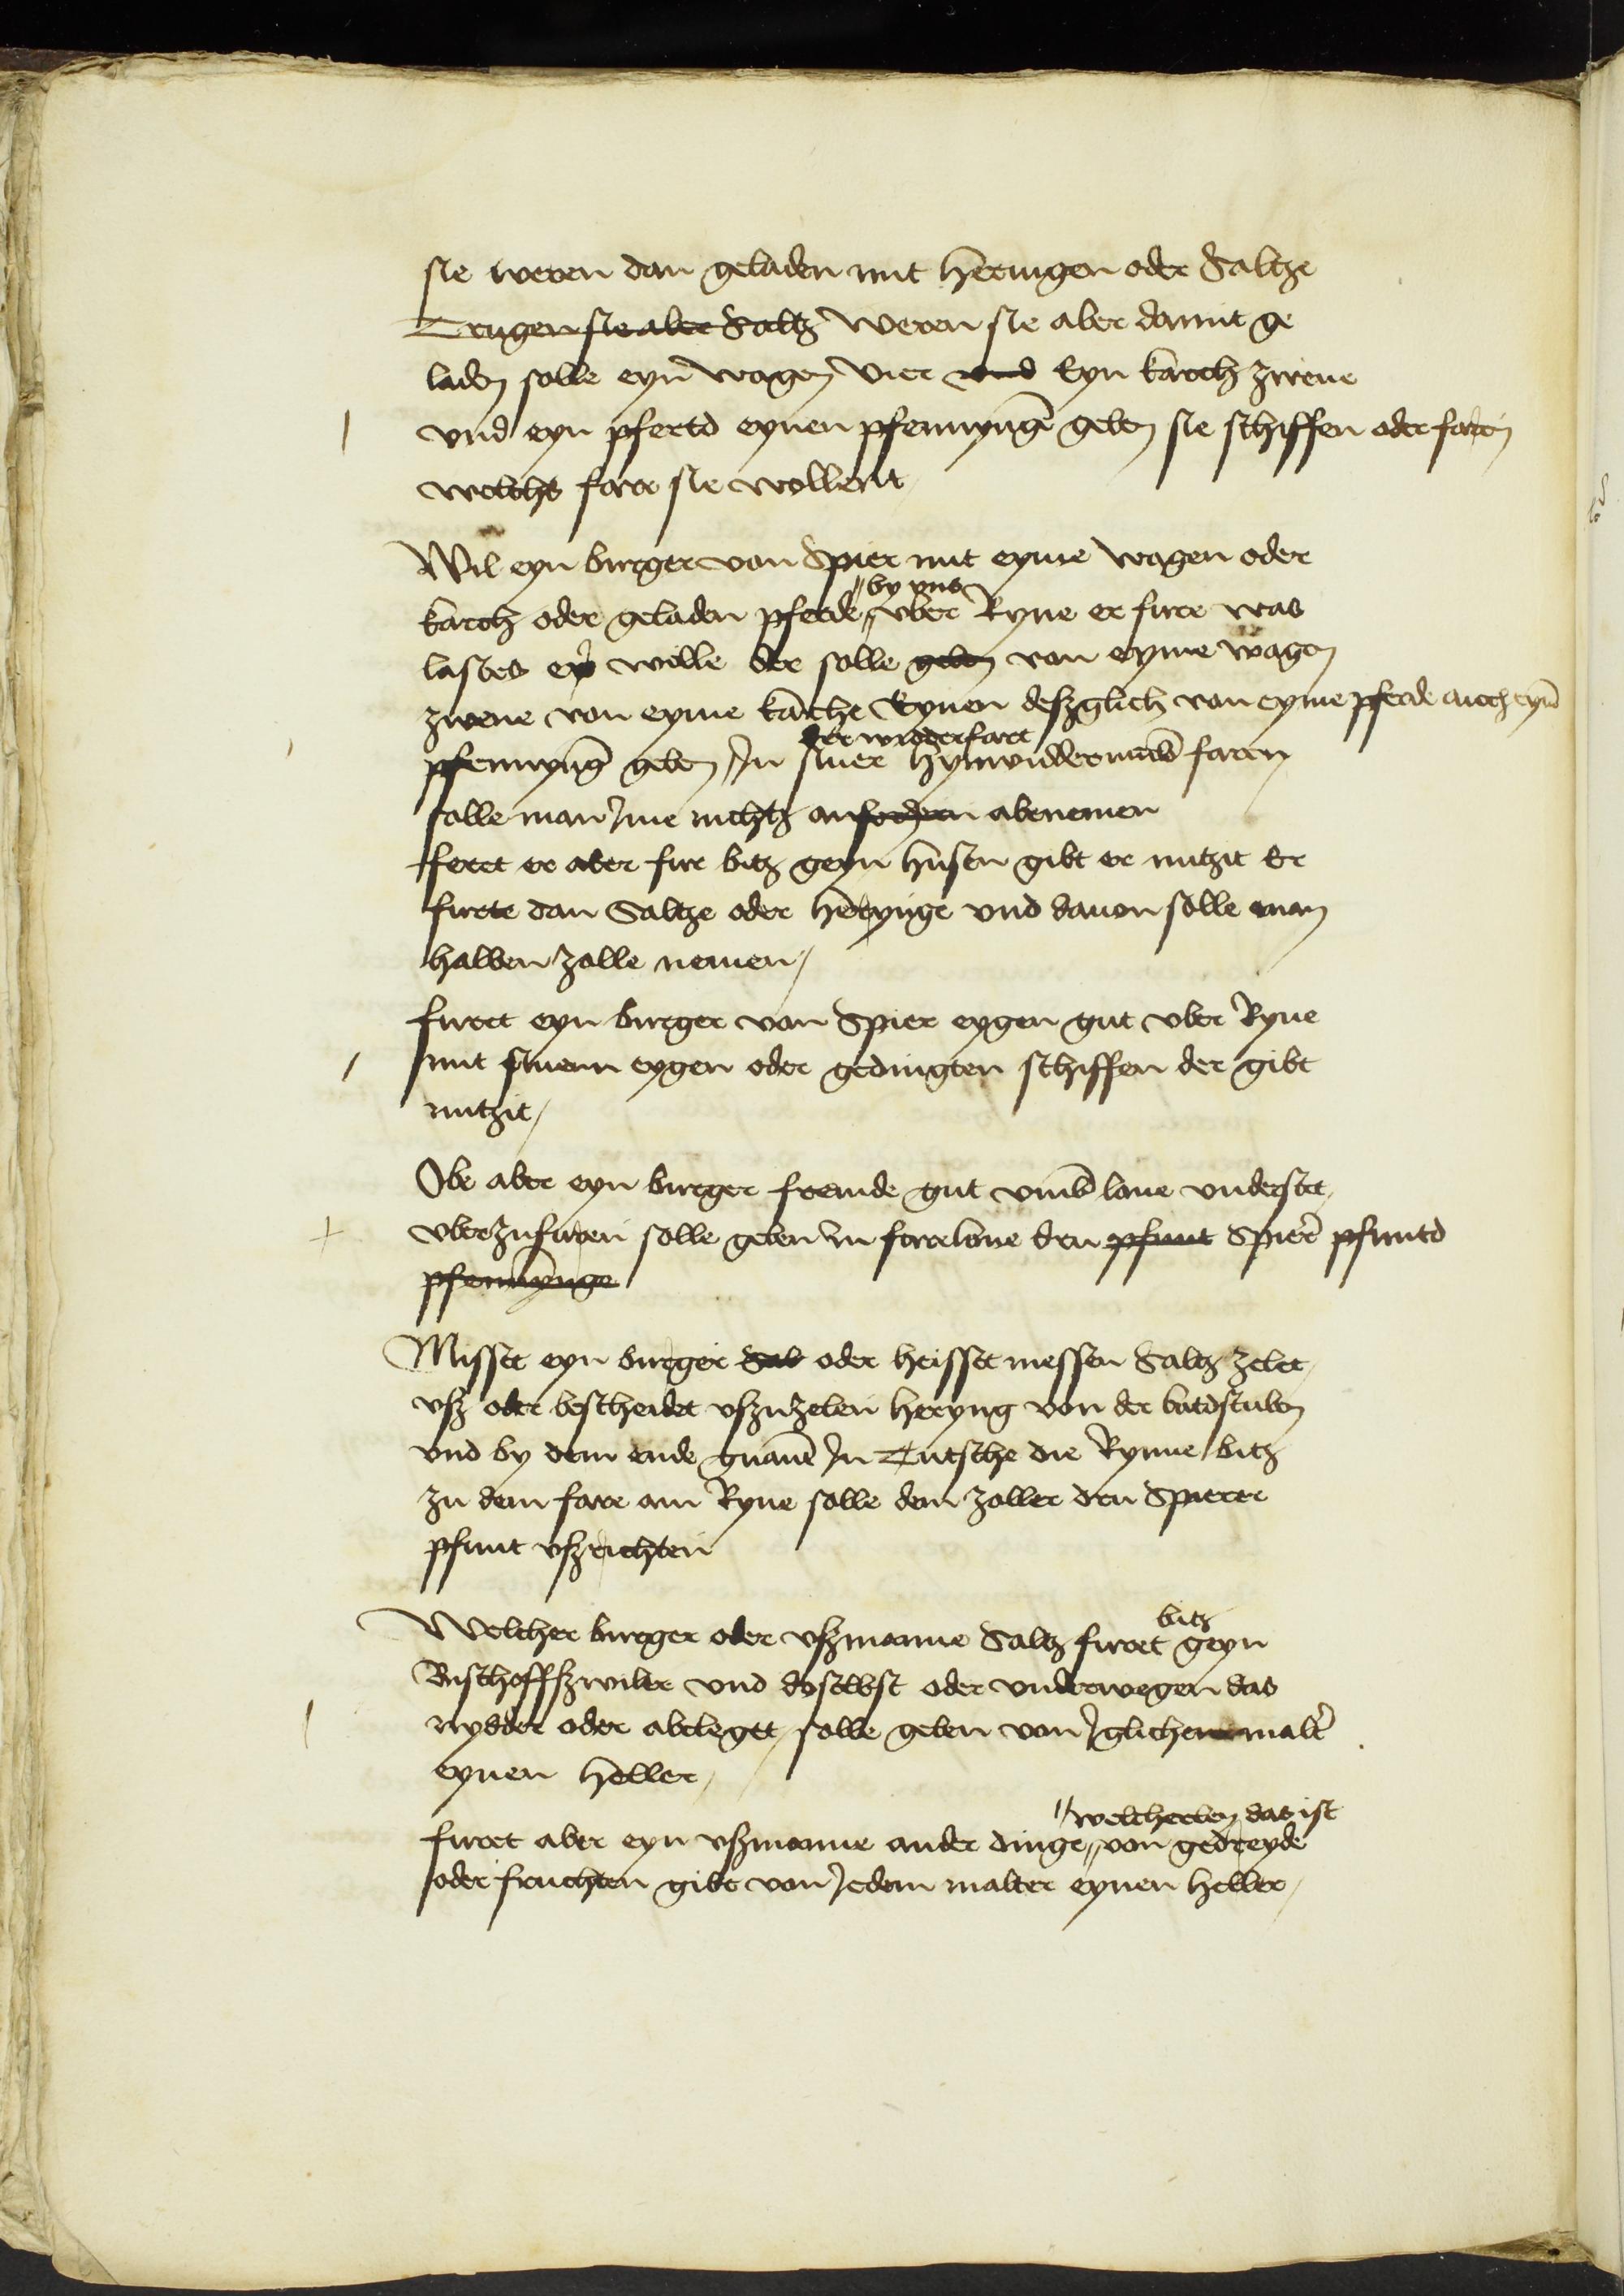 sie weren dan geladen mit heringen oder Saltze
Trugen sie aber Saltz weren sie aber damit ge
laden solle eyn wagen vier und Eyn karch zwene
vnd eyn pfertd eynen pfennyng geben sie schiffen oder faren
welchs fare sie wollent
Wil eyn burger von Spier mit eyme wagen oder
by vns
karch oder geladen pferde vber Ryne er fure was
lastes er wille der solle geben von eyme wagen
zwene von eyme karche Eynen deszglich von eyme pferde auch eyn
der widderfart
pfennyng geben In siner hynwidderumb faren
solle man Ime nichtz anfordern abenemen
feret er aber fur bitz geyn husen gibt er nutzit Er
furte dan Saltze oder herynge vnd dauon solle man
halben zolle nemen
furet eyn burger von Spier eygen gut vber Ryne
mit sinem eygen oder gedingten schiffen der gibt
nutzit
Obe aber eyn burger fremde gut vmb lone understet
vberzufuren solle geben den Spirer pfuntd
pfennynge
Misset eyn burger Sal oder heisset messen Saltz zelet
vsz oder bescheidet vszuzelen heryng von der batdstuben
vnd by dem ende gnant In Tutsche die Rynne bitz
zu dem fare am Ryne solle dem zoller den Spierer
pfunt vszrichten
bitz
Welcher burger oder vszmanne Saltz furet geyn
Bischoffszwiler vnd doselbst oder vnderwegen das
nydder oder ableget solle geben von Iglichem malter
eynen heller
welcherley das ist
furet aber eyn vszmanne ander dinge von getreyde
oder fruchten gibt von Jedem malter eynen heller